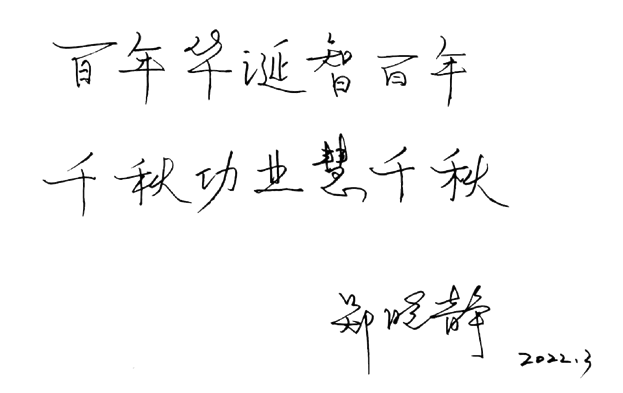 百年华诞智百年
千秋功业慧千秋
郑晓静
2022.3